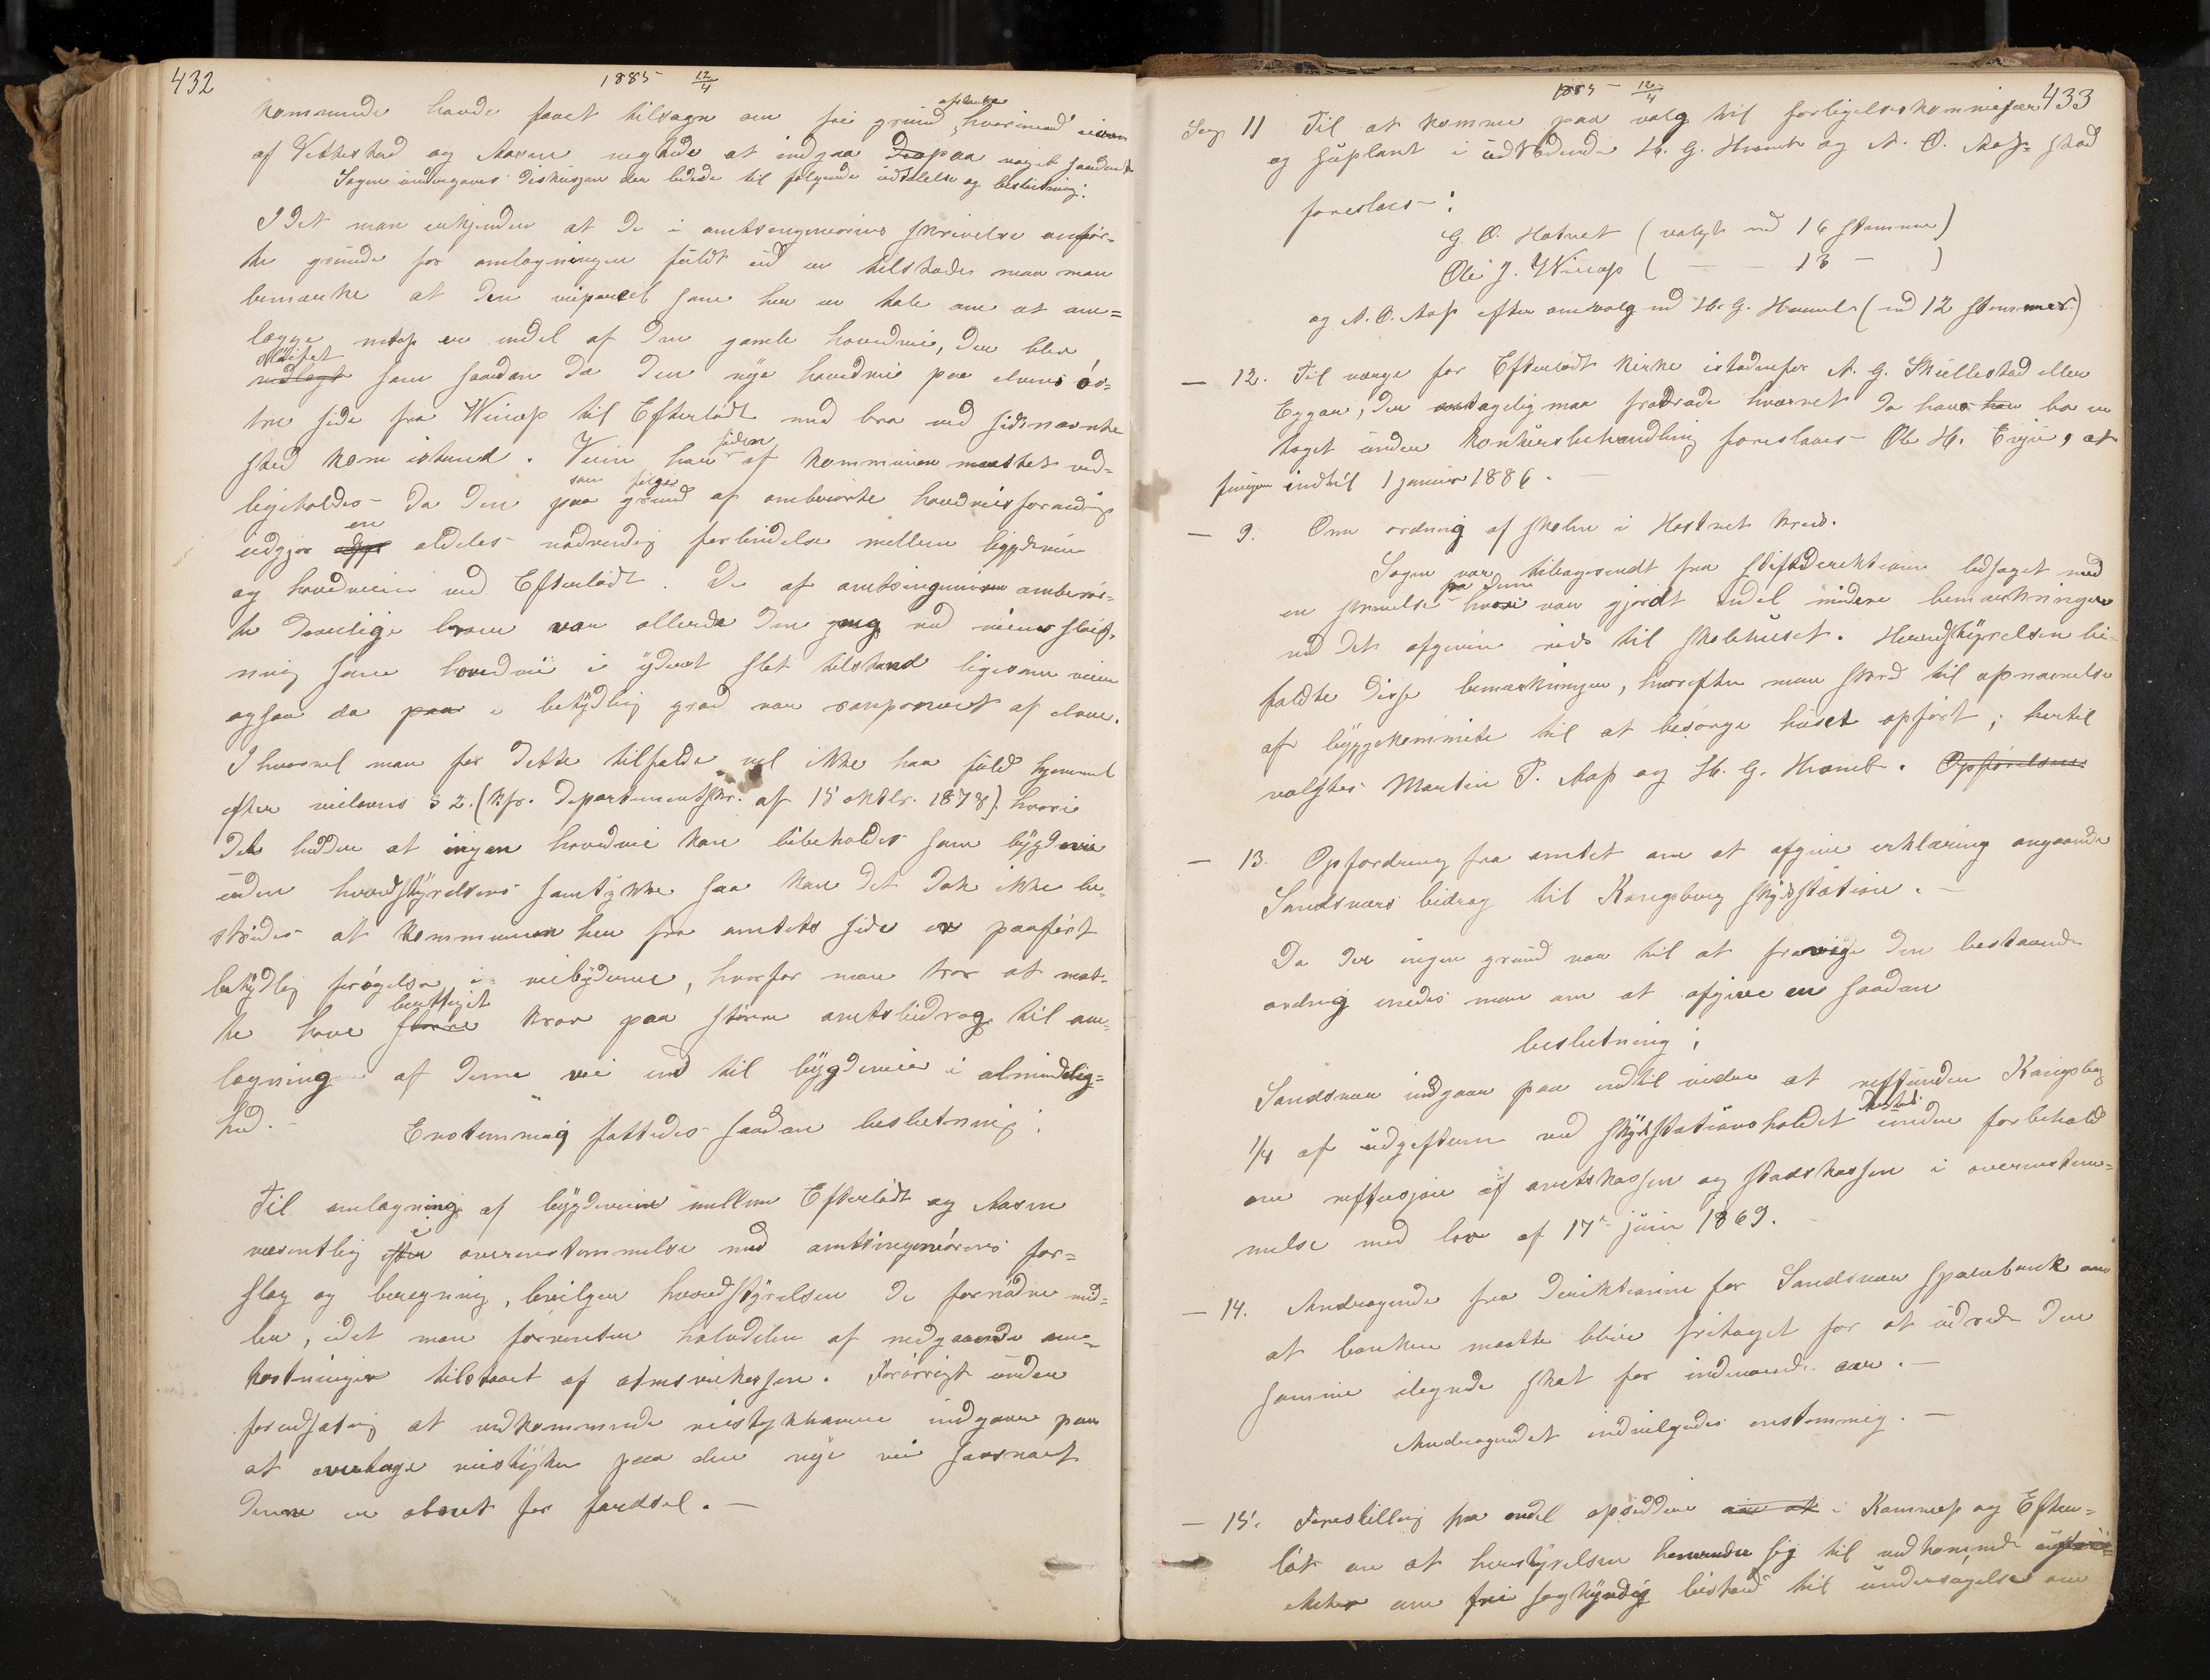 432
1885 12/4
kommende havde faaet tilsagn om fri grund, hvorimod eieren
af Vettestad og Aasen negtede at indgaa paa noget saadant
Sagen undergaves diskusjon der ledede til følgende udtalelse og beslutning:
Idet man erkjender at de i amtsingeniørens skrivelse anfør-
te grunde for omlægningen fuldt ud er tilstede maa man
bemærke at den veiparcel som her er tale om at om=
lægge netop er endel af den gamle hovedvei, der blev
sløifet
nedlagt som saadan da den nye hovedvei paa elvens ös-
tre side fra Winæs til Eftelødt med bro ved sidstnævnte
sted kom istand. Veien har siden af kommunen maattet ved-
ligeholdes da den som følge paa grund af ombeviste hovedveisforandring
udgjør en aldeles nödvendig forbindelse mellem bygdeveie
og hovedveien ved Eftelødt. De af amtsingeniøren omhand-
te daarlige broer var allerede den gang ved veiens sløif-
ning som hovedvei i yderst slet tilstand ligesom veien
ogsaa da paa i betydlig grad var ramponeret af elven.
Ihvorvel man for dette tilfælde vel ikke har fuld hjemmel
efter veilovens § 2. (kfr. Departementsskr. af 15 oktbr. 1878) hvori
det hedder at ingen hovedvei kan bibeholdes som bygdevei
uden herredstyrelsens samtykke saa kan det dok ikke be-
strides at kommunen her fra amtets side er paaført
betydlig forøgelse i veibyrderne, hvorfor man tror at maat-
te have berettiget større krav paa større amtsbidrag til om-
lægningen af denne vei end til bygdeveie i almindelig=
hed.- Enstemmig fattedes saadan beslutning:
Til omlægning af bygdeveien mellem Eftelødt og Aasen
væsentlig i efter overensstemmelse med amtsingeniørens for=
slag og beregning, bevilger herredstyrelsen de fornødne mid-
ler, idet man forventer halvdelen af medgaaende om=
kostninger tilstaaet af amtsveikassen. Forøvrigt under
forudsætning at vedkommende veistykhavere indgaar paa
at overtage veistykker paa den nye vei saasnart
denne er åbnet for færdsel. —
1885 - 12/4
433
Sag 11 Til at komme paa valg til forligelseskommissær
og suplant i udtrædende H. G. Hvamb og N. O. Aas's sted
foreslaes:
G. O. Hostvet (valgt ved 16 stemmer)
Ole J. Winæs ( — — 13 — )
og N. O. Aas efter omvalg med H. G. Hvamb (ved 12 stemmer)
— 12. Til værge for Eftelødt kirke istedenfor N. G. Skullestad eller
Eggar, der antagelig maa fratræde hvervet da hans bo er
taget under konkursbehandling foreslaaes Ole H. Enger, at
fungere indtil 1 januar 1886. —
— 9. Om ordning af skolen i Hostvet kreds.
Sagen var tilbagesendt fra stiftsdirektionen ledsaget med
en skrivelse hvori var gjordt endel mindre bemærkninger
ved det afgivne rids til skolehuset. Herredstyrelsen bi-
faldte disse bemærkninger, hvorefter man skred til opnævnelse
af byggekommite til at besørge huset opført; hertil
valgtes Martin T. Aas og H. G. Hvamb. Opførelsen
— 13. Opfordring fra amtet om at afgive erklæring angaaende
Sandsværs bidrag til Kongsberg skydsstation. —
Da der ingen grund var til at fravige den bestaaende
ordning enedes man om at afgive en saadan
beslutning:
Sandsvær indgaar paa indtil videre at reffundere Kongsberg
1/4 af udgifterne ved skydsstationsholdet under forbehold
om reffusjon af amtskassen og stadskassen i overensstem=
melse med lov af 17de juni 1869.
— 14. Andragende fra direktionen for Sandsvær sparebank om
at banken maatte blive fritaget for at udrede den
samme ilignede skat for indeværende aar. —
Andragendet indvilgedes enstemmig. —
— 15. Forestilling fra endel opsiddere om at i Komnæs og Efte-
løt om at herredstyrelsen henvender sig til vedkommende
om fri sagkyndig bistand til undersøgelse om